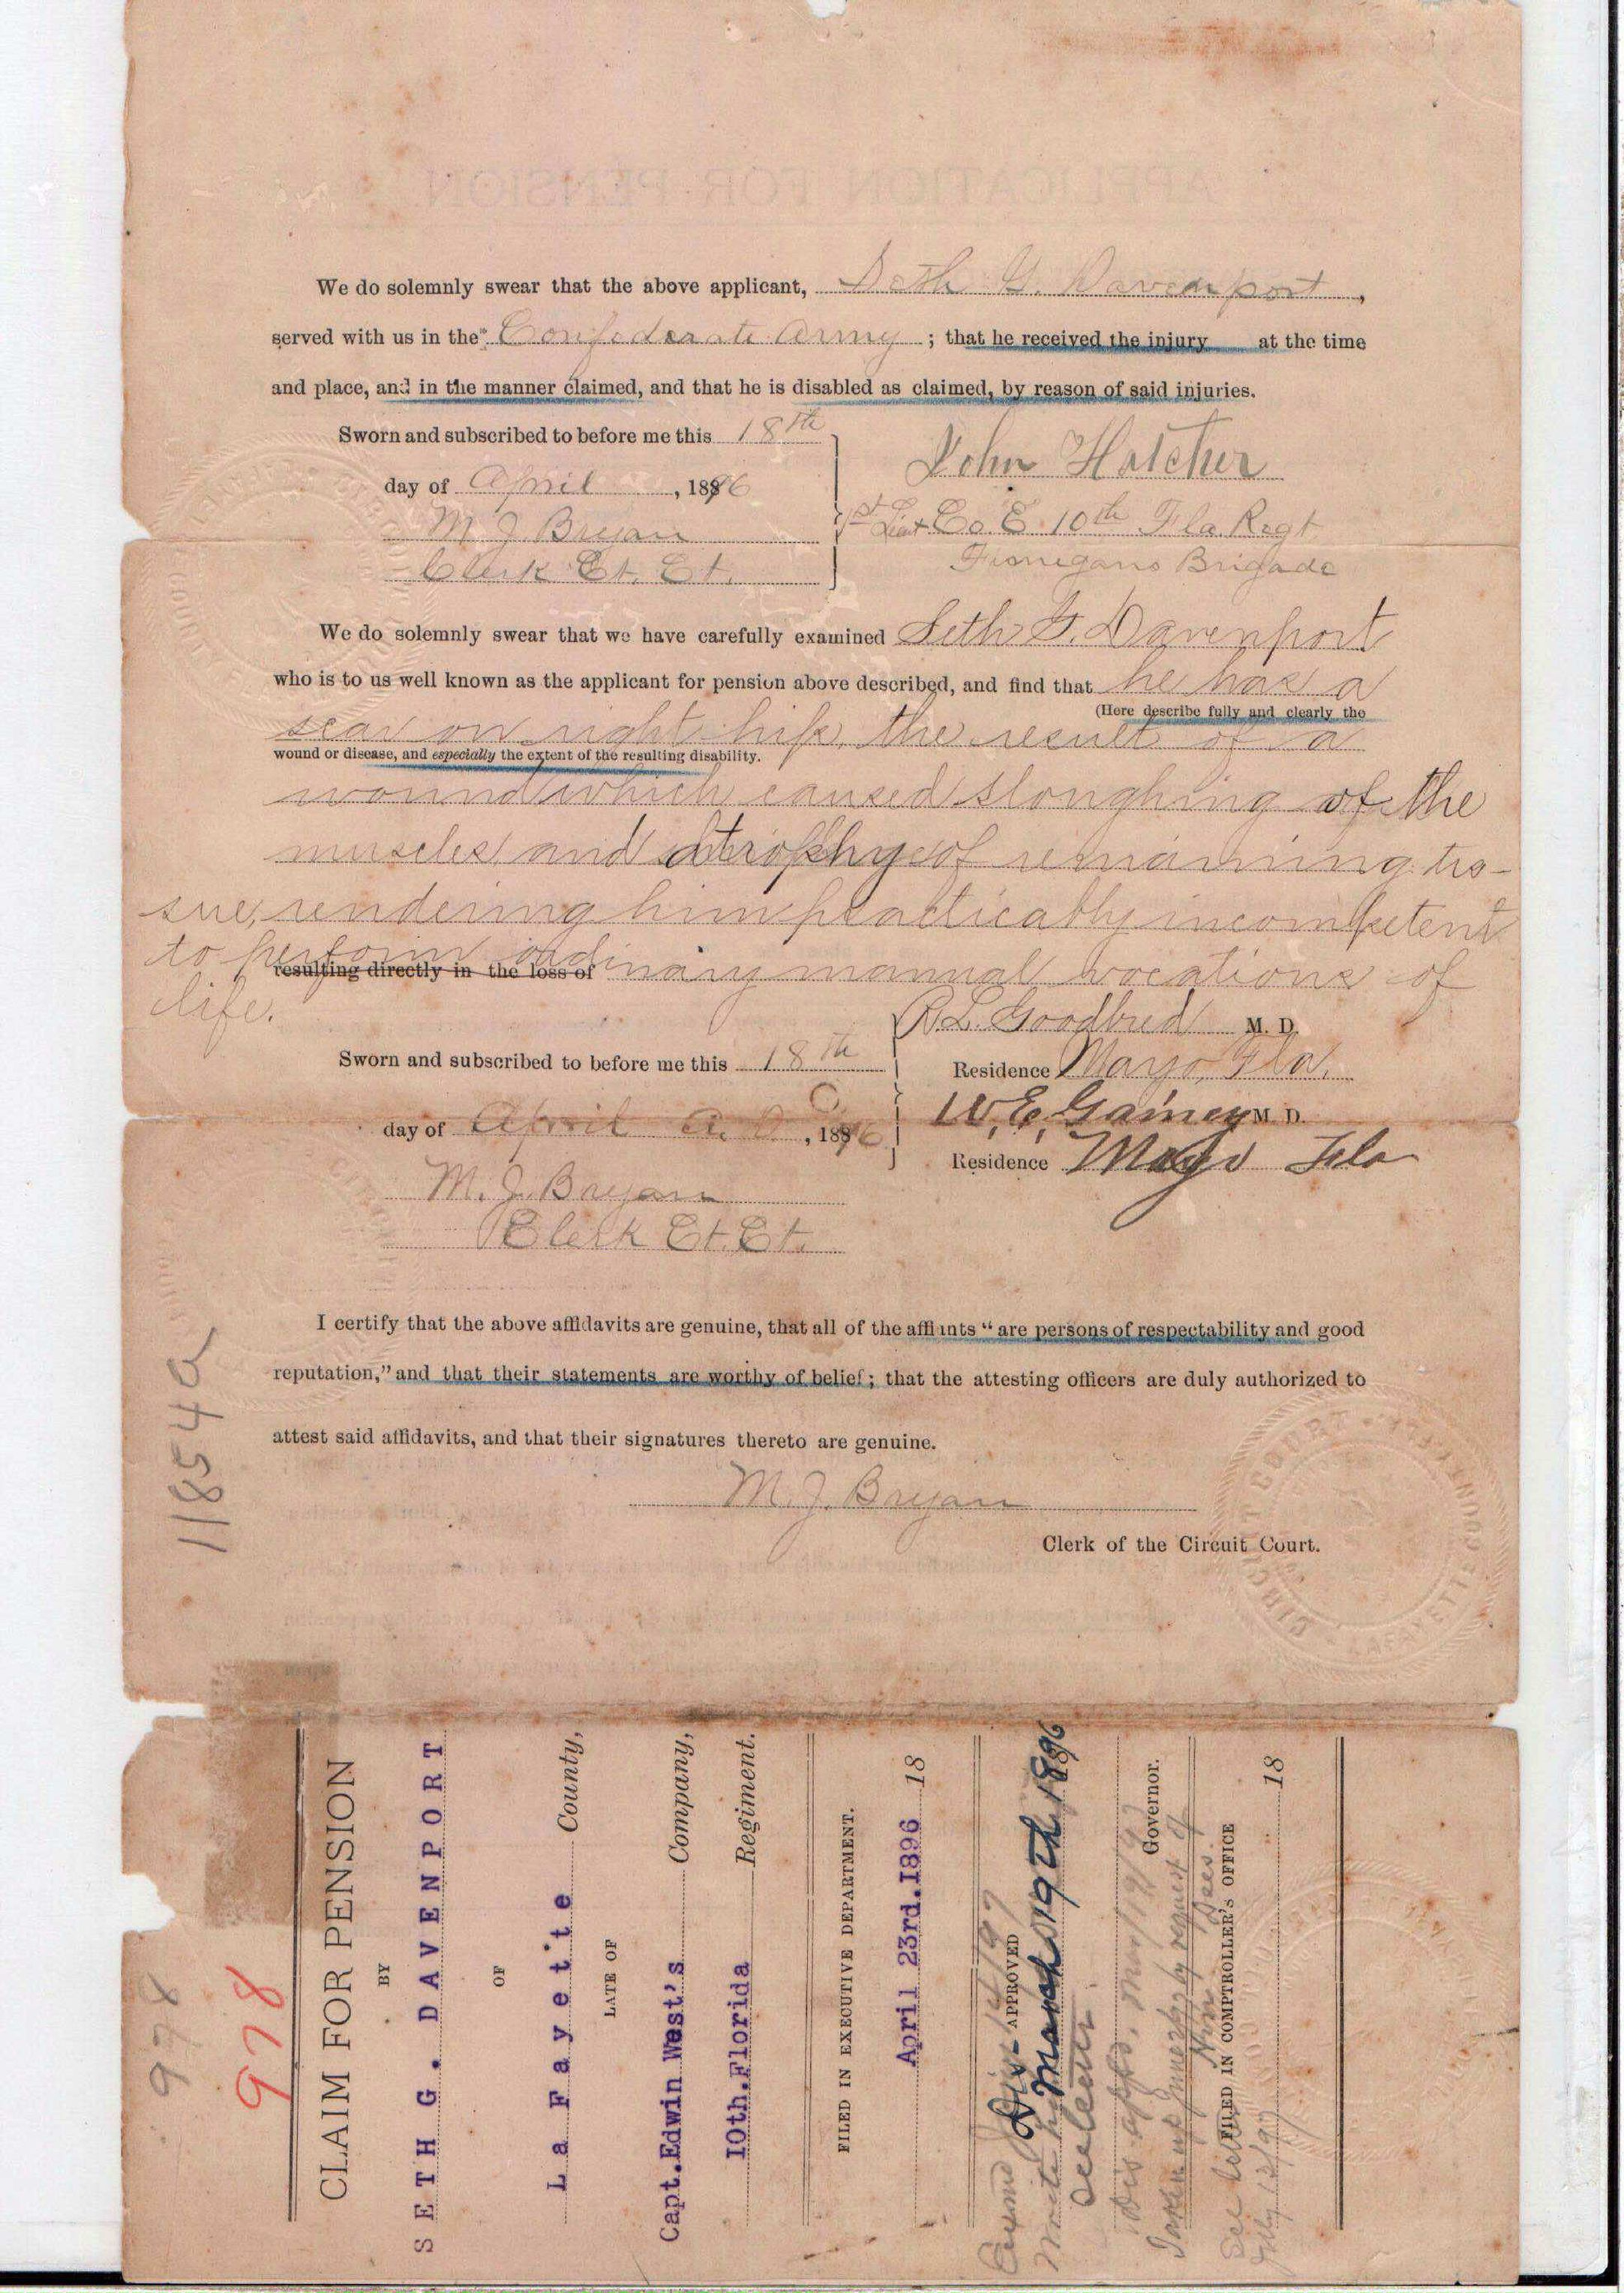 We do solemnly swear that the above applicant, Seth G. Davenport,
served with us in the Confederate Army; that he received the injury at the time
and place, and in the manner claimed, and that he is disabled as claimed, by reason of said injuries.
Sworn and subscribed to before me this 18th
day of April, 1896
M. J. Bryan
Clerk Ct. Ct.
John Hatcher
1st Lieut Co. E 10th Fla. Regt
Finnegans Brigade
We do solemnly swear that we have carefully examined Seth G. Davenport
who is to us well known as the applicant for pension above described, and find that he has a
(Here describe fully and clearly the
scar on right hip, the result of a
wound or disease, and especially the extent of the resulting disability.
wound which caused sloughing of the
muscles and atrophy of remaining tis-
sue, rendering him practically incompetent
to perform ordinary manual vocations of
resulting directly in the loss of
life.
Sworn and subscribed to before me this 18th
day of April A. D., 1896
M. J. Bryan
Clerk Ct. Ct.
R. L. Goodbred M. D.
Residence Mayo, Fla.
W. E. Gainey M. D.
Residence Mayo Fla
I certify that the above affidavits are genuine, that all of the affiants "are persons of respectability and good
reputation," and that their statements are worthy of belief; that the attesting officers are duly authorized to
attest said affidavits, and that their signatures thereto are genuine.
M. J. Bryan
Clerk of the Circuit Court.
CIRCUIT COURT
LAFAYETTE COUNTY
11854a
978
978
CLAIM FOR PENSION
BY
SETH G. DAVENPORT
OF
La Fayette County,
LATE OF
Capt. Edwin West's Company,
10th. Florida Regiment.
FILED IN EXECUTIVE DEPARTMENT.
April 23rd. 1896 18
Dis-APPROVED
March 19th, 1896
see letter
Governor.
by request of
FILED IN COMPTROLLER'S OFFICE
18
See letter
July 13/97
APPLICATION FOR PENSION